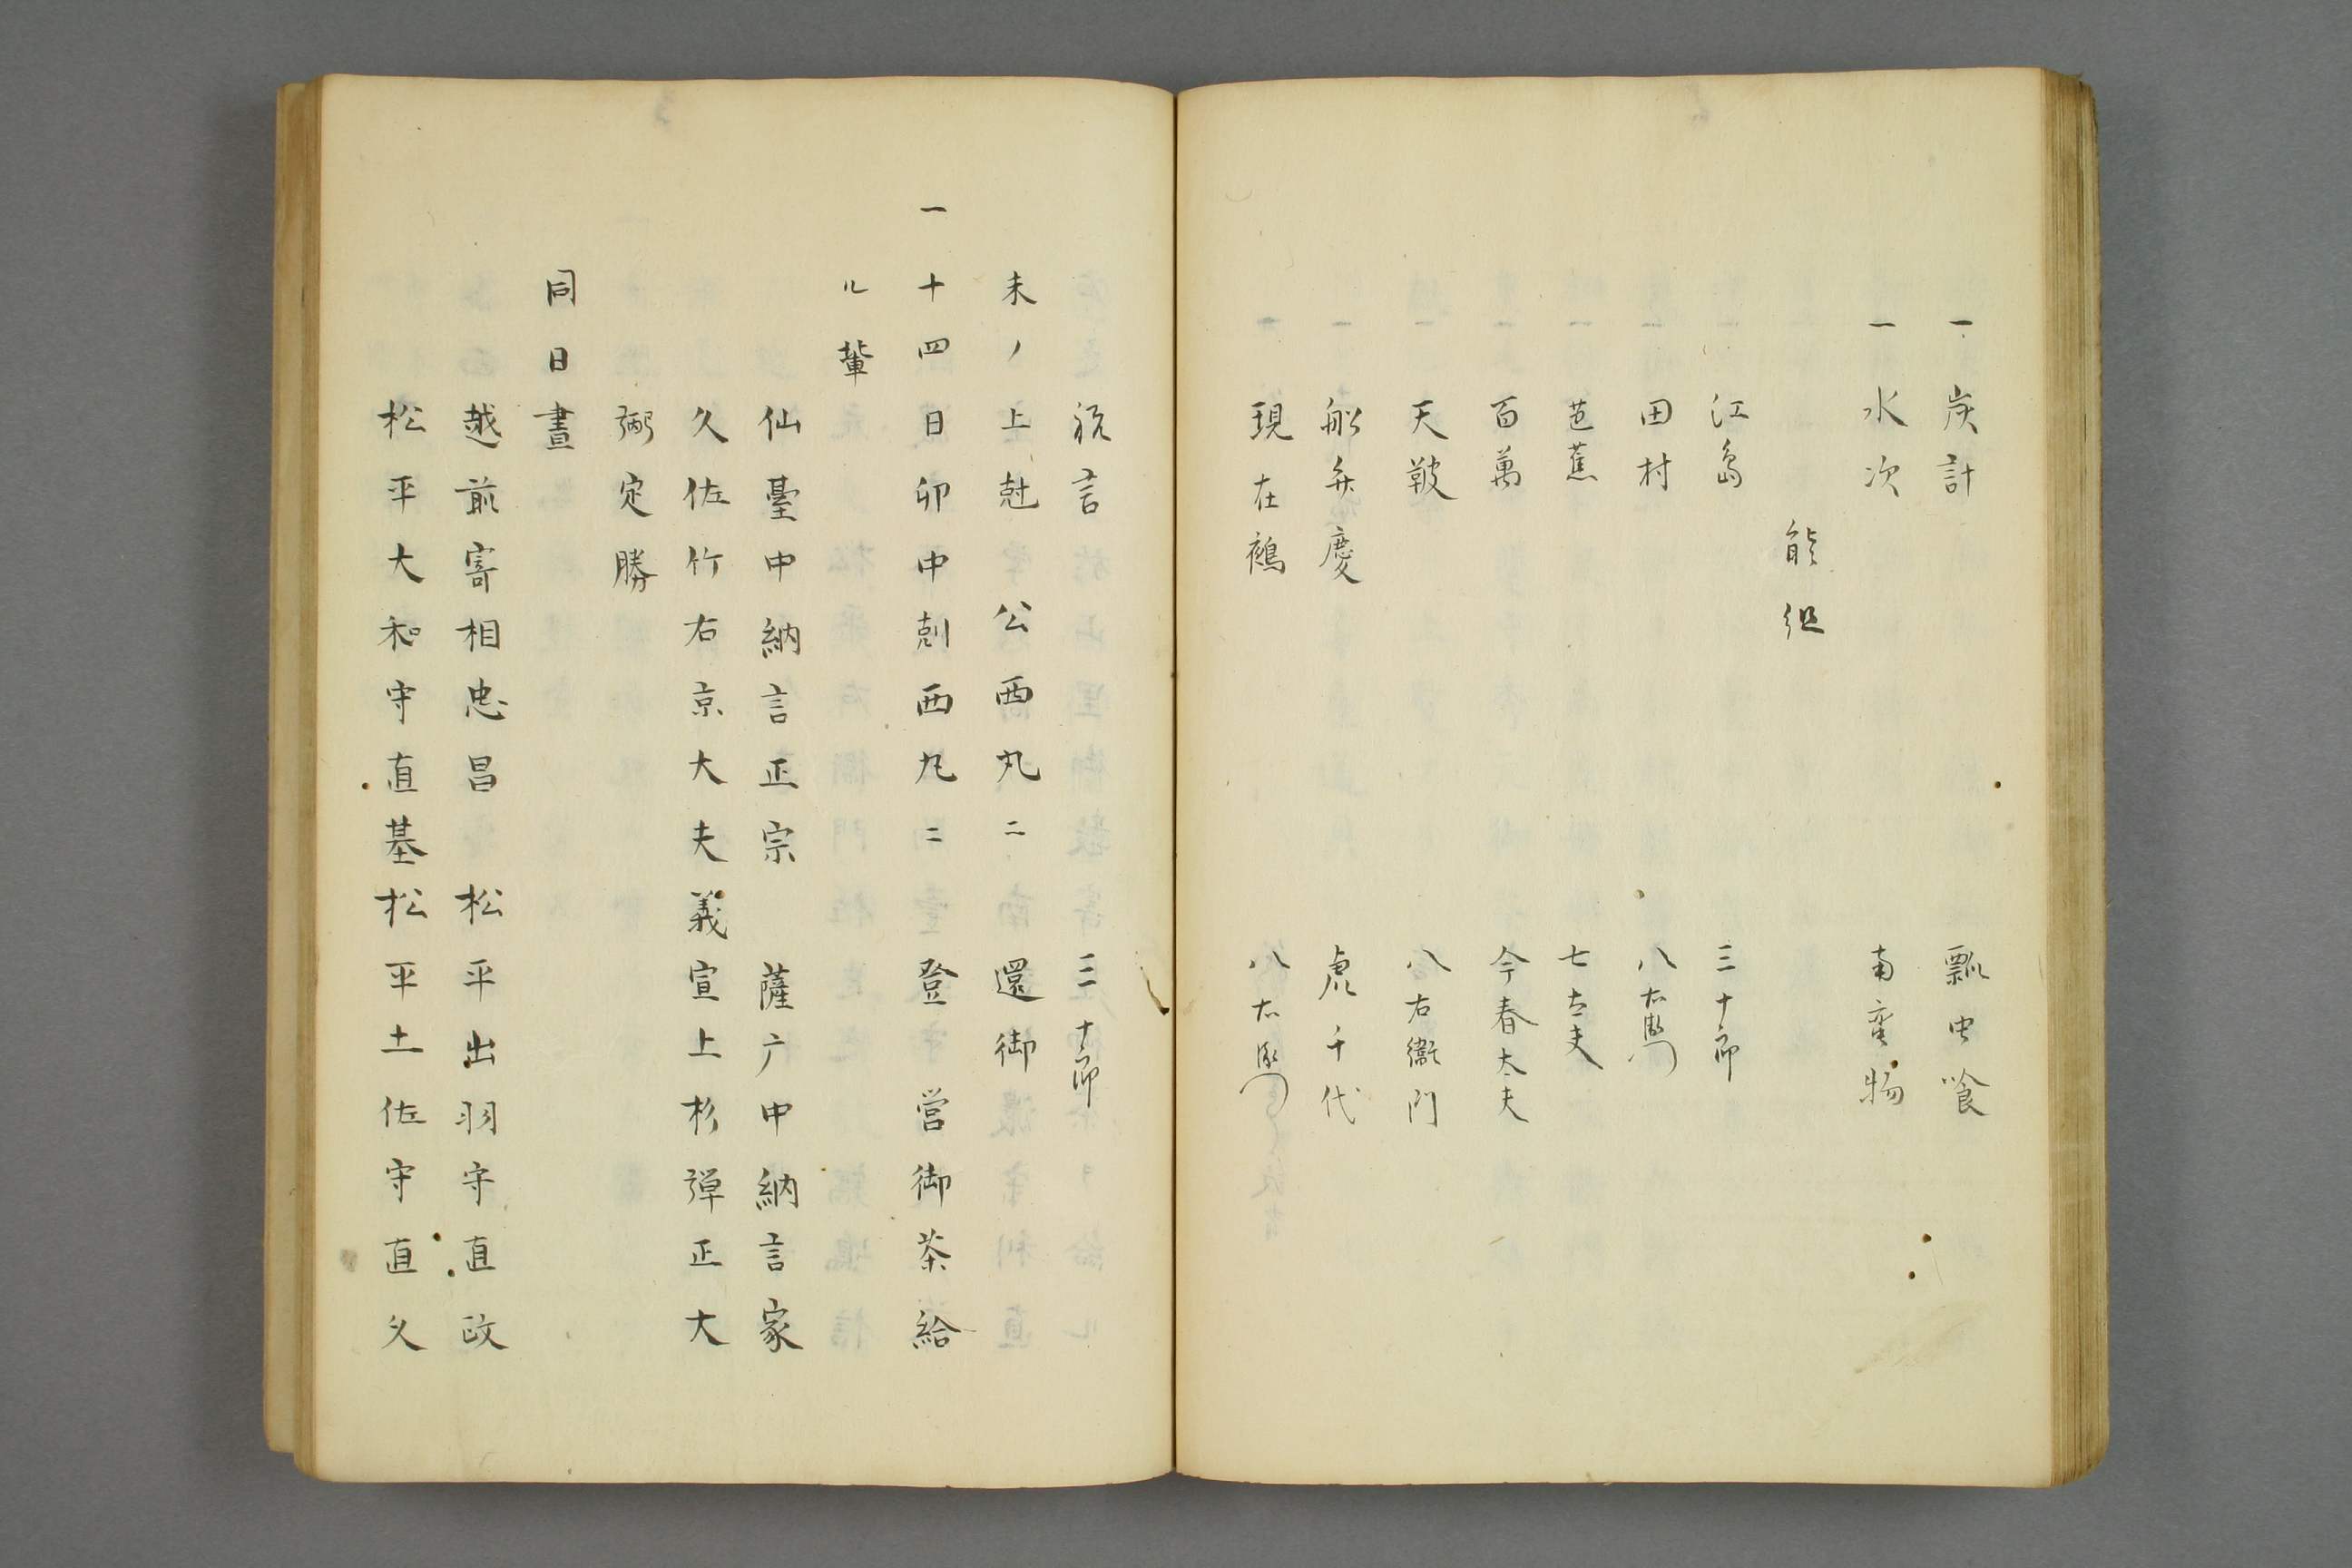 一炭計 瓢虫喰
一水次 南蛮物
能組
江島 三十郎
田村 八右衛門
芭蕉 七太夫
百萬 今春太夫
天鞁 八右衛門
舩弁慶 虎千代
現在鵺 八右衛門
祝言 三十郎
未ノ上尅公西丸ニ還御
一十四日卯中尅西丸ニ登営御茶給
ル輩
仙臺中納言正宗 薩广中納言家
久佐竹右京大夫義宣上杉弾正大
弼定勝
同日晝
越前宰相忠昌 松平出羽守直政
松平大和守直基松平土佐守直久